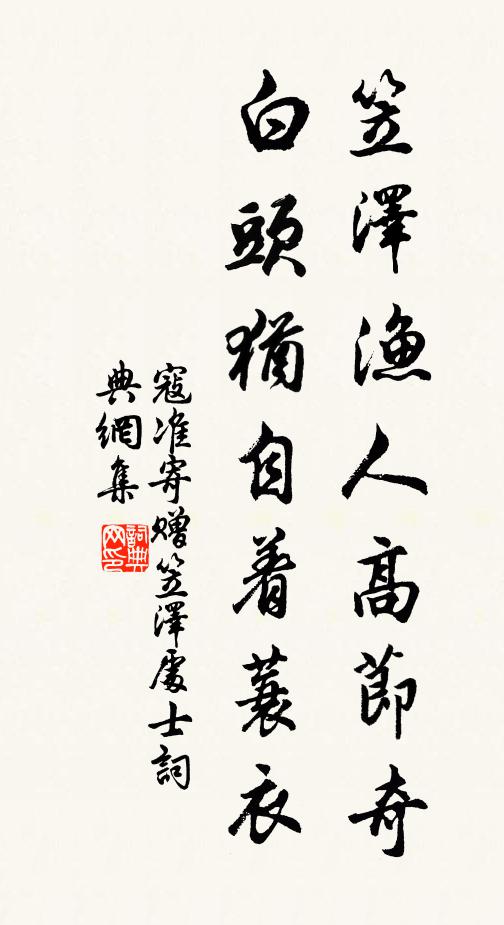 笠澤漁人高節奇
白頭猶自着蓑衣
寇准寄贈笠澤處士詞
典網集
詞典
网印